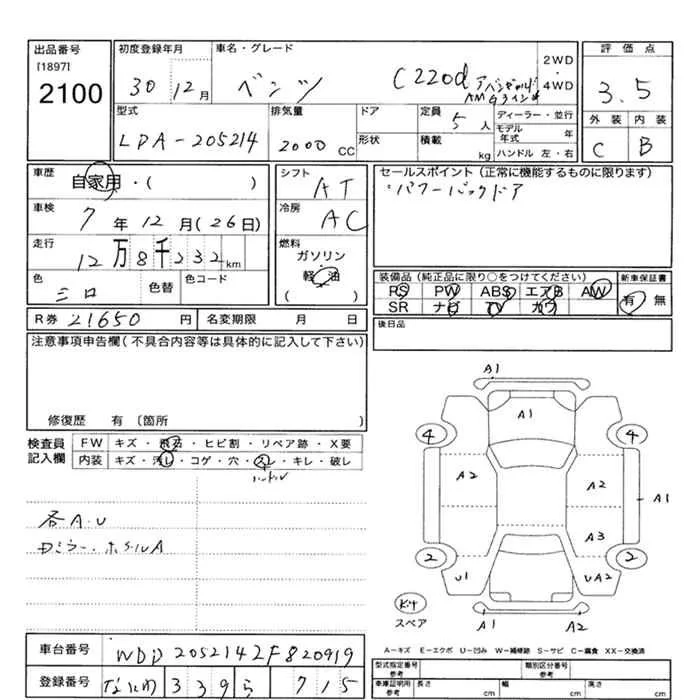 出品番号
[1897]
2100
初度登録年月
30 12月
車名・グレード
ベンツ C220d アバンギャルド
AMGライン
2WD
4WD
評価点
3.5
外装 内装
C B
型式
LDA-205214
排気量
2000 CC
ドア
形状
定員
5人
積載
kg
ディーラー・並行
モデル年式 年
ハンドル 左・右
車歴
自家用・( )
車検
7年12月(26日)
走行
12万8千232km
色
シロ
色替
色コード
シフト
AT
冷房
AC
燃料
ガソリン
軽油
( )
セールスポイント(正常に機能するものに限ります)
・パワーバックドア
装備品(純正品に限り○をつけてください)
PS PW ABS エアB AW
SR ナビ TV カワ
新車保証書
有 無
後日品
R券 21650 円
名変期限 月 日
注意事項申告欄(不具合内容等は具体的に記入して下さい)
修復歴 有 〔箇所 〕
検査員
記入欄
FW キズ・飛石・ヒビ割・リペア跡・X要
内装 キズ・汚レ・コゲ・穴・スレ・キレ・破レ
ハンドル
各A.U
Dミラー.ホイルA
A1
A1
4 4
A2 A2
A1
A3
2 2
U1 UA2
A1 A2
スペア
A-キズ E-エクボ U-凹み W-補修跡 S-サビ C-腐食 XX-交換済
車台番号
WDD2052142F820919
登録番号
なにわ 339 ら 715
型式指定番号
参考
類別区分番号
参考
車庫証明用
参考
長さ cm
幅 cm
高さ cm